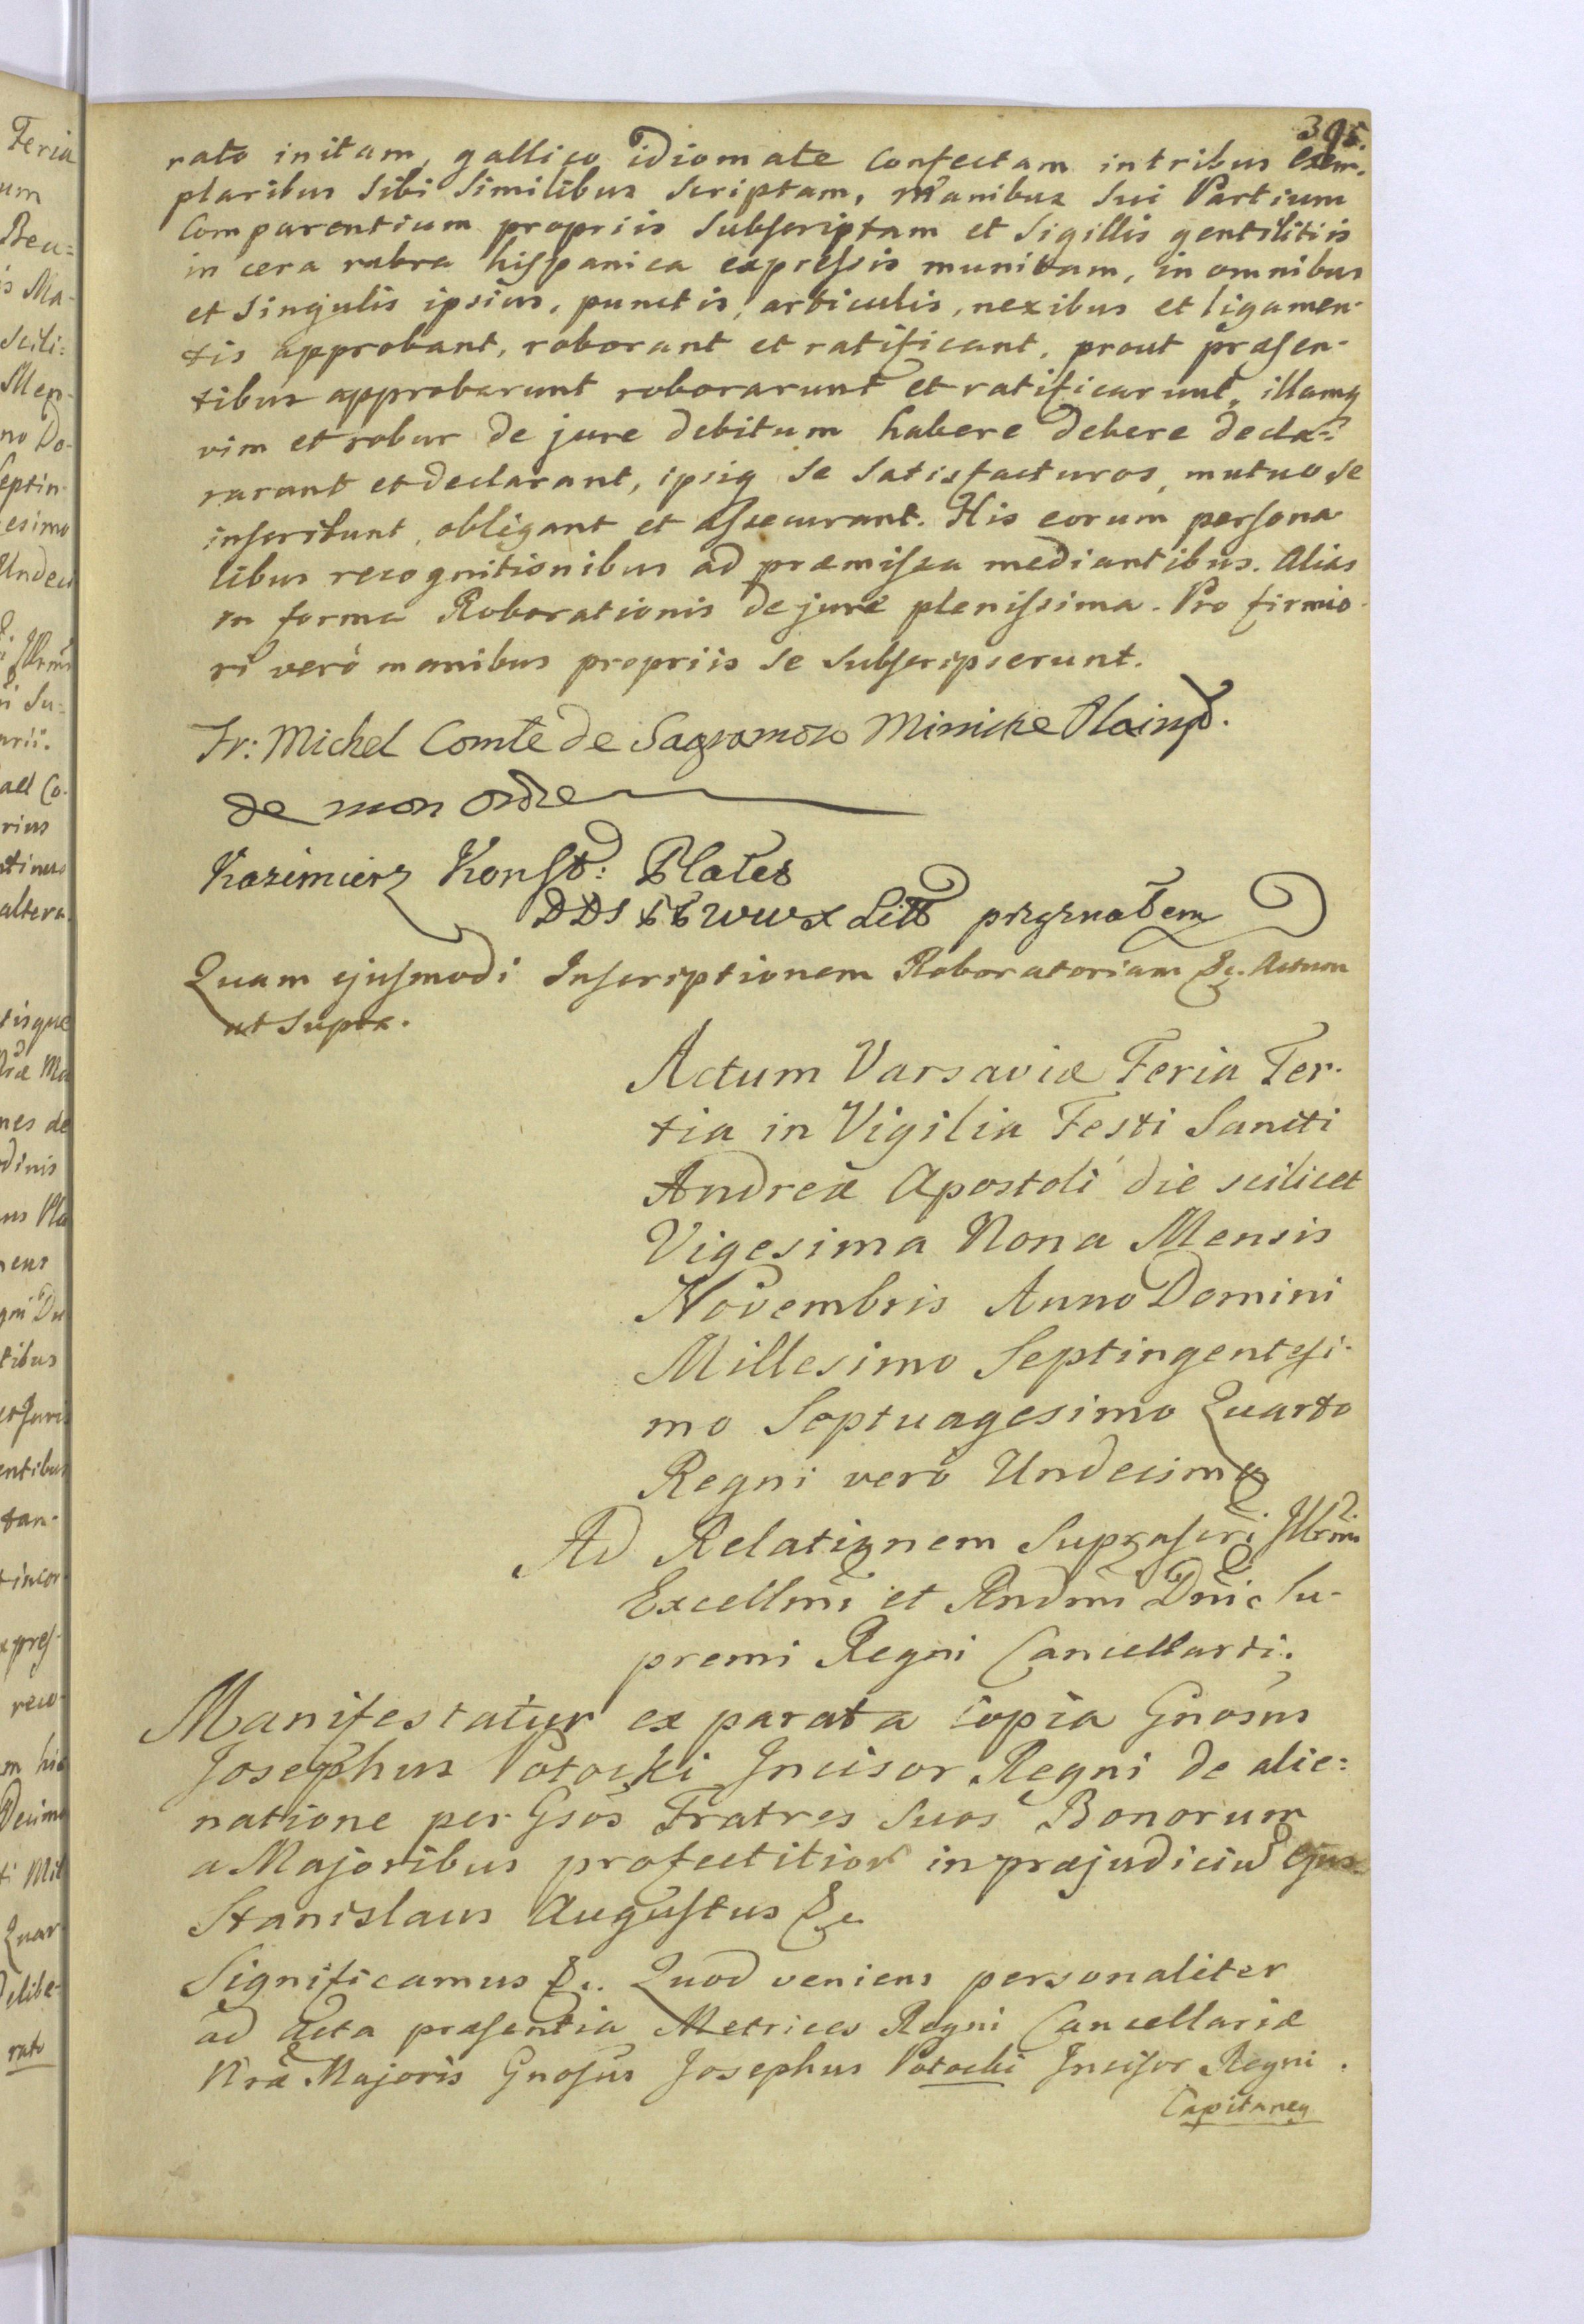 395.
rato initam, gallico idiomate confectam in tribus exem-
plaribus sibi similibus scriptam, manibus sui Partium
Comparentium propriis subscriptam et sigillis gentilitiis
in cera rubra hispanica expressis munitam, in omnibus
et singulis ipsius, punctis, articulis, nexibus et ligamen-
tis approbant, roborant et ratificant, prout præsen-
tibus approbarunt roborarunt et ratificarunt, illamq
vim et robur de jure debitum habere debere decla=
rarant et declarant, ipsiq se satisfacturos, mutuo se
inscribunt, obligant et assecurant. His eorum persona
libus recognitionibus ad præmissa mediantibus. Alias
in forma Roborationis de jure plenissima. Pro firmio-
ri verò manibus propriis se subscripserunt.
Fr: Michel Comte de Sagramoso Ministre
de mon ordre
Kazimierz Konst: Plater
przyznałem
Quam ejusmodi Inscriptionem Roboratoriam &c. Actum
ut supra.
Actum Varsaviæ Feria Ter-
tia in Vigilia Festi Sancti
Andreæ Apostoli die scilicet
Vigesima Nona Mensis
Novembris Anno Domini
Millesimo Septingentesi-
mo Septuagesimo Quarto
Regni verò Undecimo
Ad Relationem Suprascri Illrmi
Excellmi et Rndmi Dni Su-
premi Regni Cancellarii.
Manifestatur ex parata copia Gnosus
Josephus Potocki Incisor Regni de alie=
natione per Gsos Fratres suos Bonorum
a Majoribus profectitior in præjudiciu Ejus
Stanislaus Augustus &c
Significamus &c. Quod veniens personaliter
ad Acta præsentia Metrices Regni Cancellariæ
Nræ Majoris Gnosus Josephus Potocki Incisor Regni
Capitaney